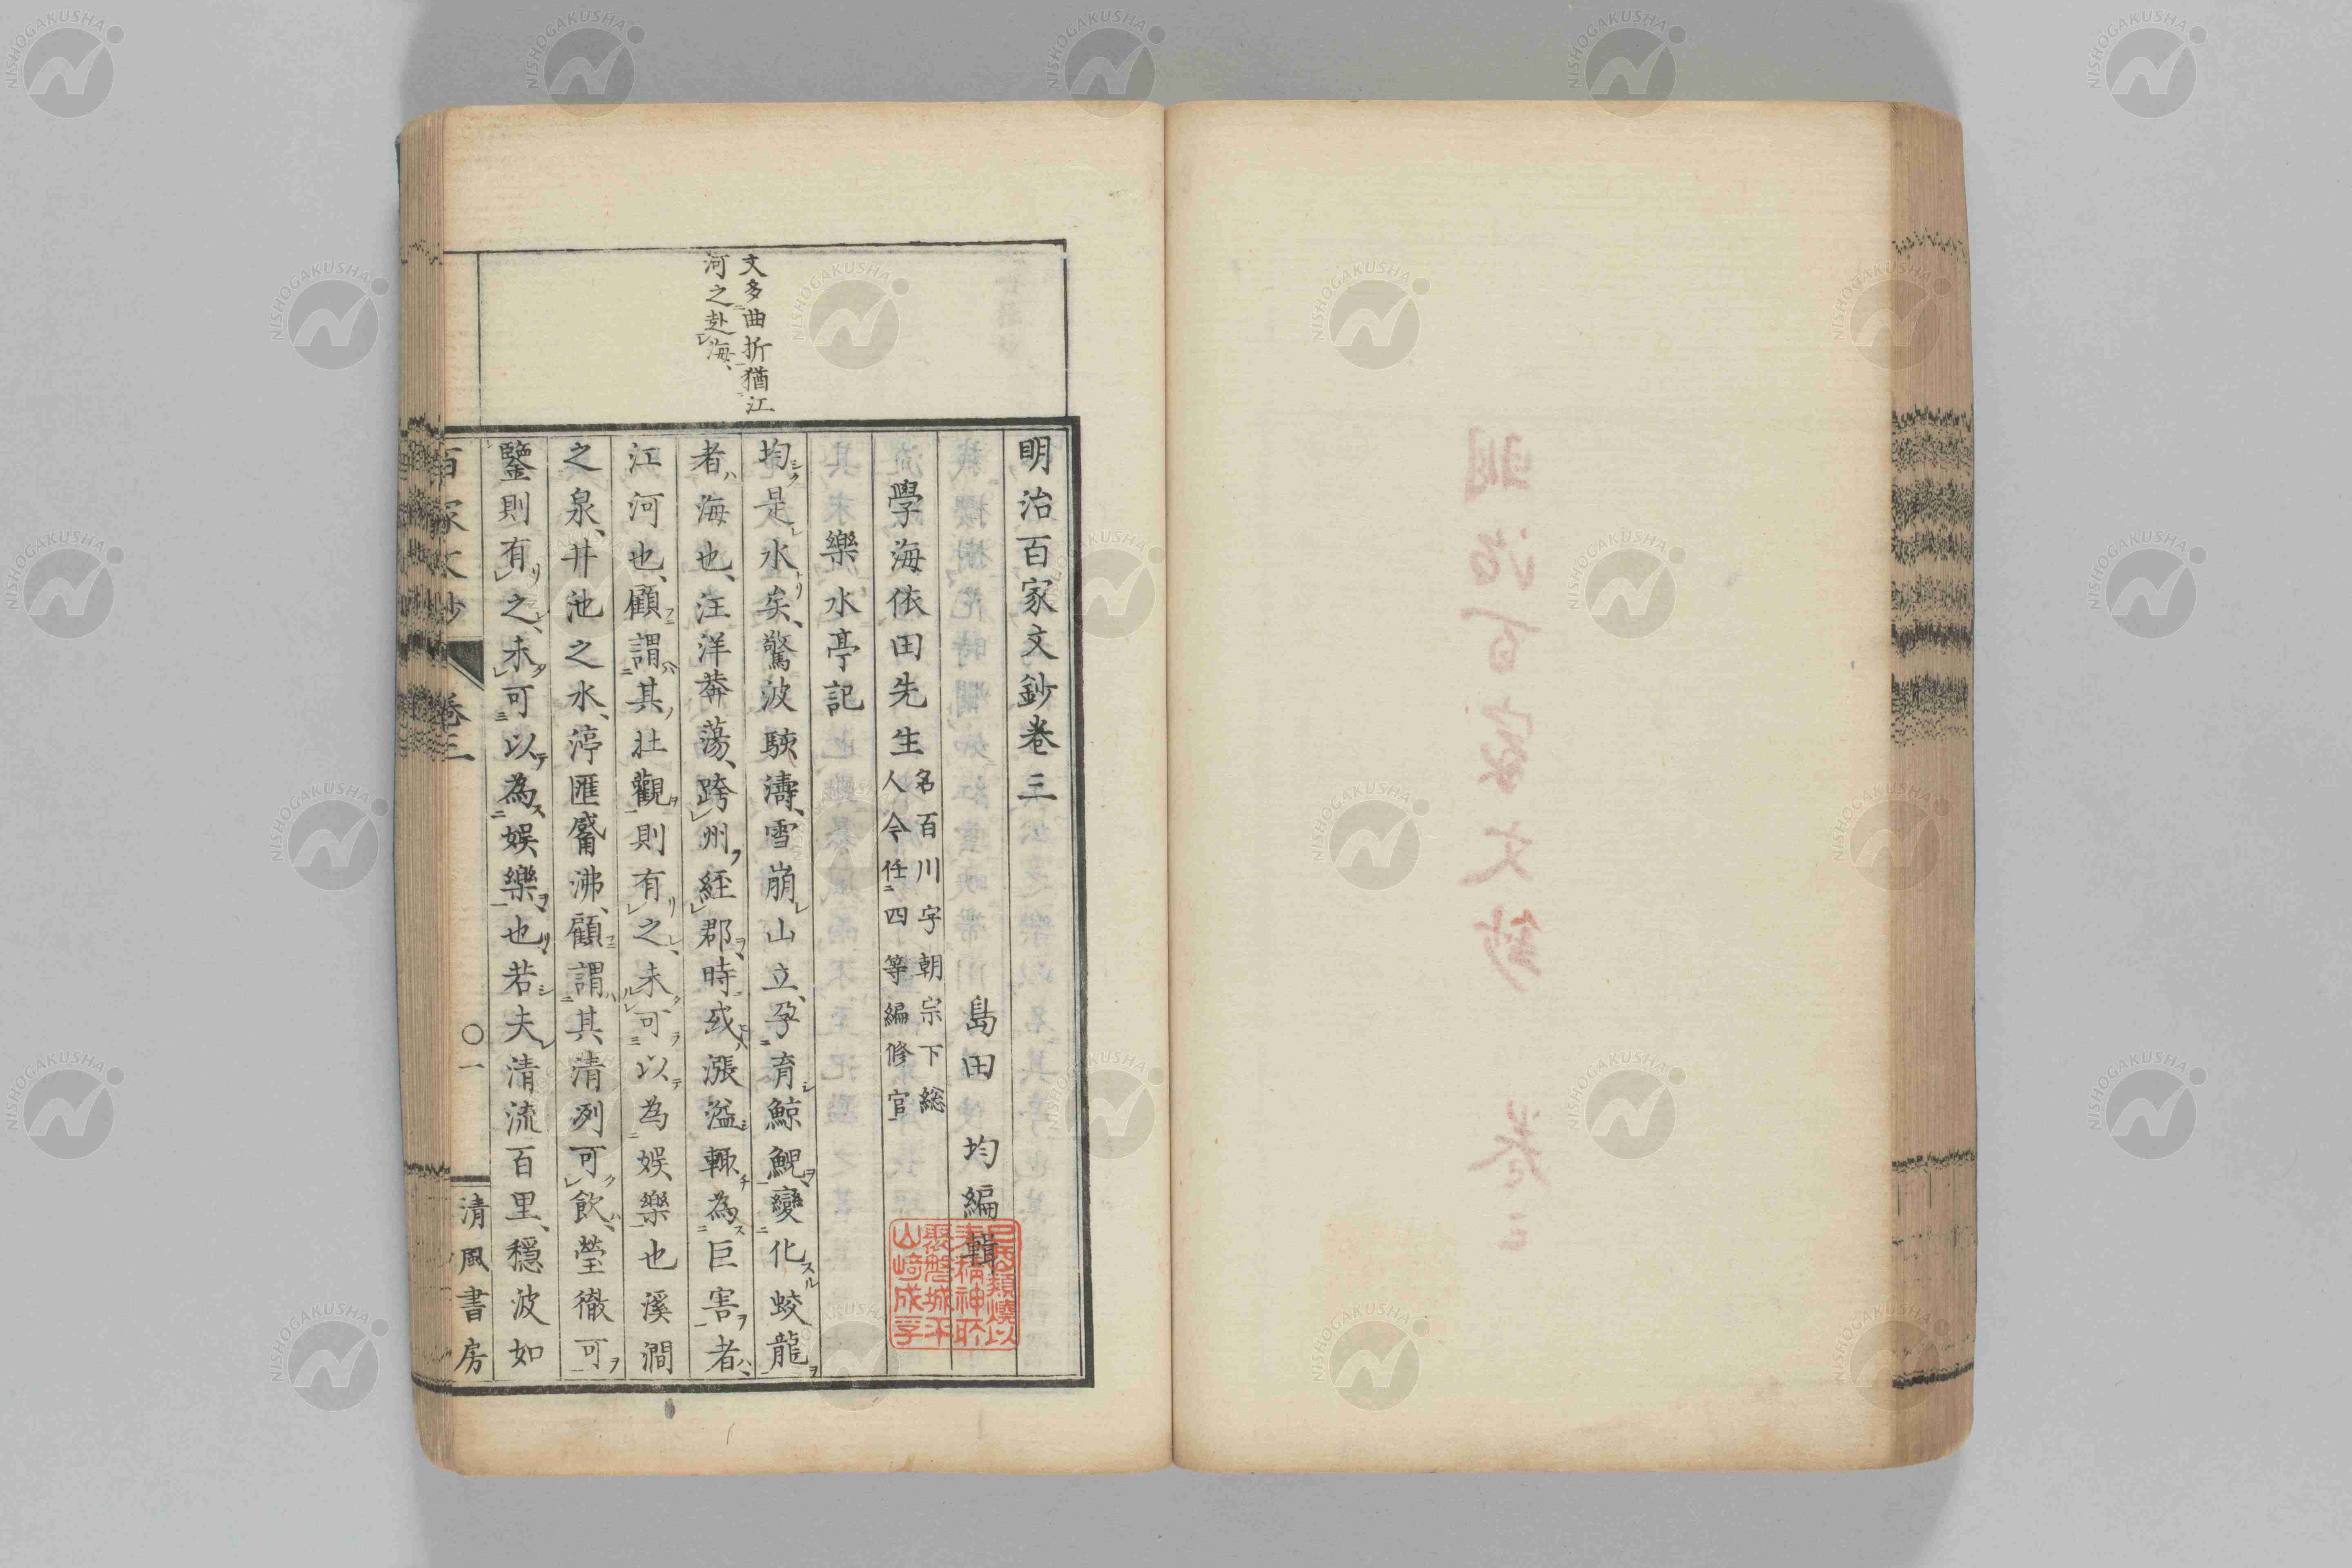 明治百家文鈔卷三
島田　均編輯
學海依田先生 名百川字朝宗下総人今任四等編修官
樂水亭記
均是水矣、驚波駭濤、雪崩山立、孕育鯨鯢變化蛟龍
者海也、汪洋莽蕩、跨州經郡、時或漲溢輙為巨害者、
江河也、顧謂其壯觀則有之、未可以為娯樂也溪澗
之泉、井池之水、渟匯觱沸、顧謂其清冽可飲、瑩徹可
鑒則有之、未可以為娯樂也若夫清流百里、穩波如
文多曲折猶江
河之赴海、
百家文鈔　卷三　〇一　清風書房
山﨑成孚
明治百家文鈔　卷三
NISHOGAKUSHA